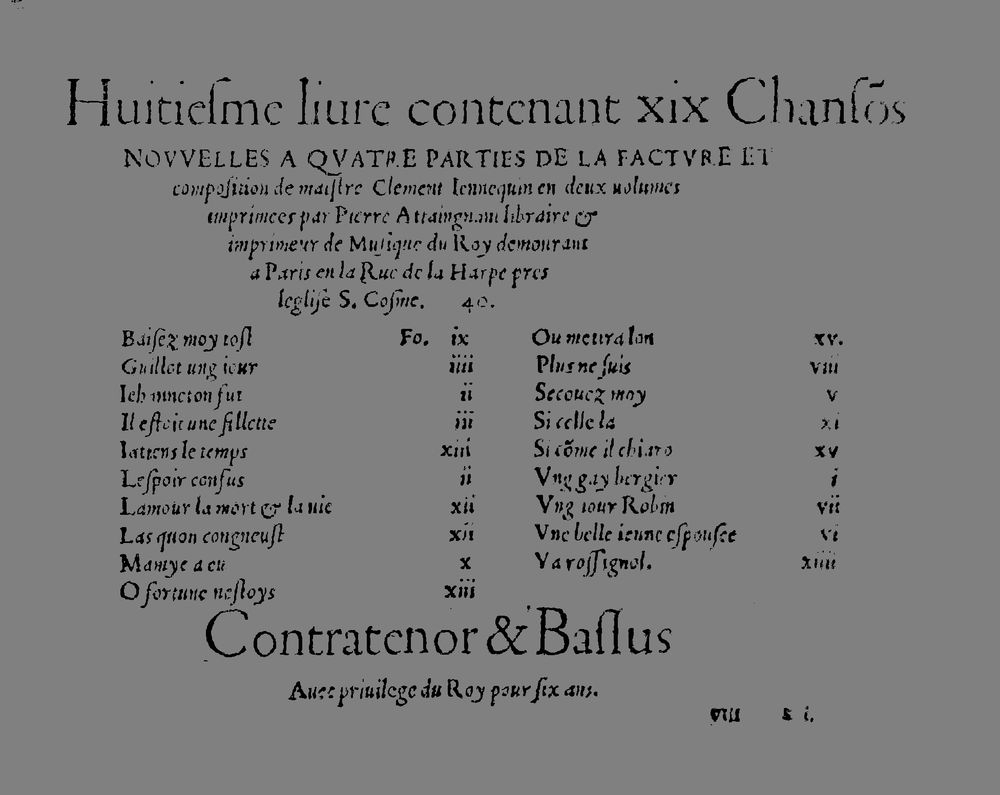 Huitiesme liure contenant xix Chansõs
NOVVELLES A QVATRE PARTIES DE LA FACTVRE ET
composition de maistre Clement Iennequin en deux uolumes
imprimees par Pierre Attaingnant libraire &
imprimeur de Musique du Roy demourant
a Paris en la Rue de la Harpe pres
leglise S. Cosme. 40.
Baisez moy tost Fo. ix
Guillot ung iour iiii
Ieh nneton fut ii
Il estoit une fillette iii
Iattens le temps xiii
Lespoir confus ii
Lamour la mort & la uie xii
Las quon congneust xii
Mamye a eu x
O fortune nestoys xiii
Ou mettra lon xv.
Plus ne suis viii
Secouez moy v
Si celle la xi
Si cõme il chiaro xv
Vng gay bergier i
Vng iour Robin vii
Vne belle ieune espousee vi
Va rossignol. xiiii
Contratenor & Bassus
Auec priuilege du Roy pour six ans.
viii & i.